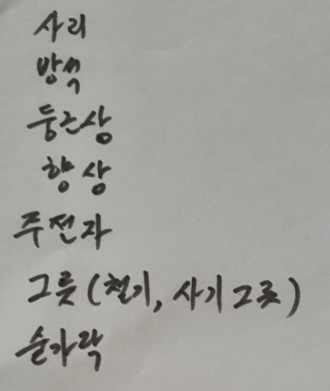 사리
방석
둥근상
향상
주전자
그릇 (철기, 사기그릇)
숟가락